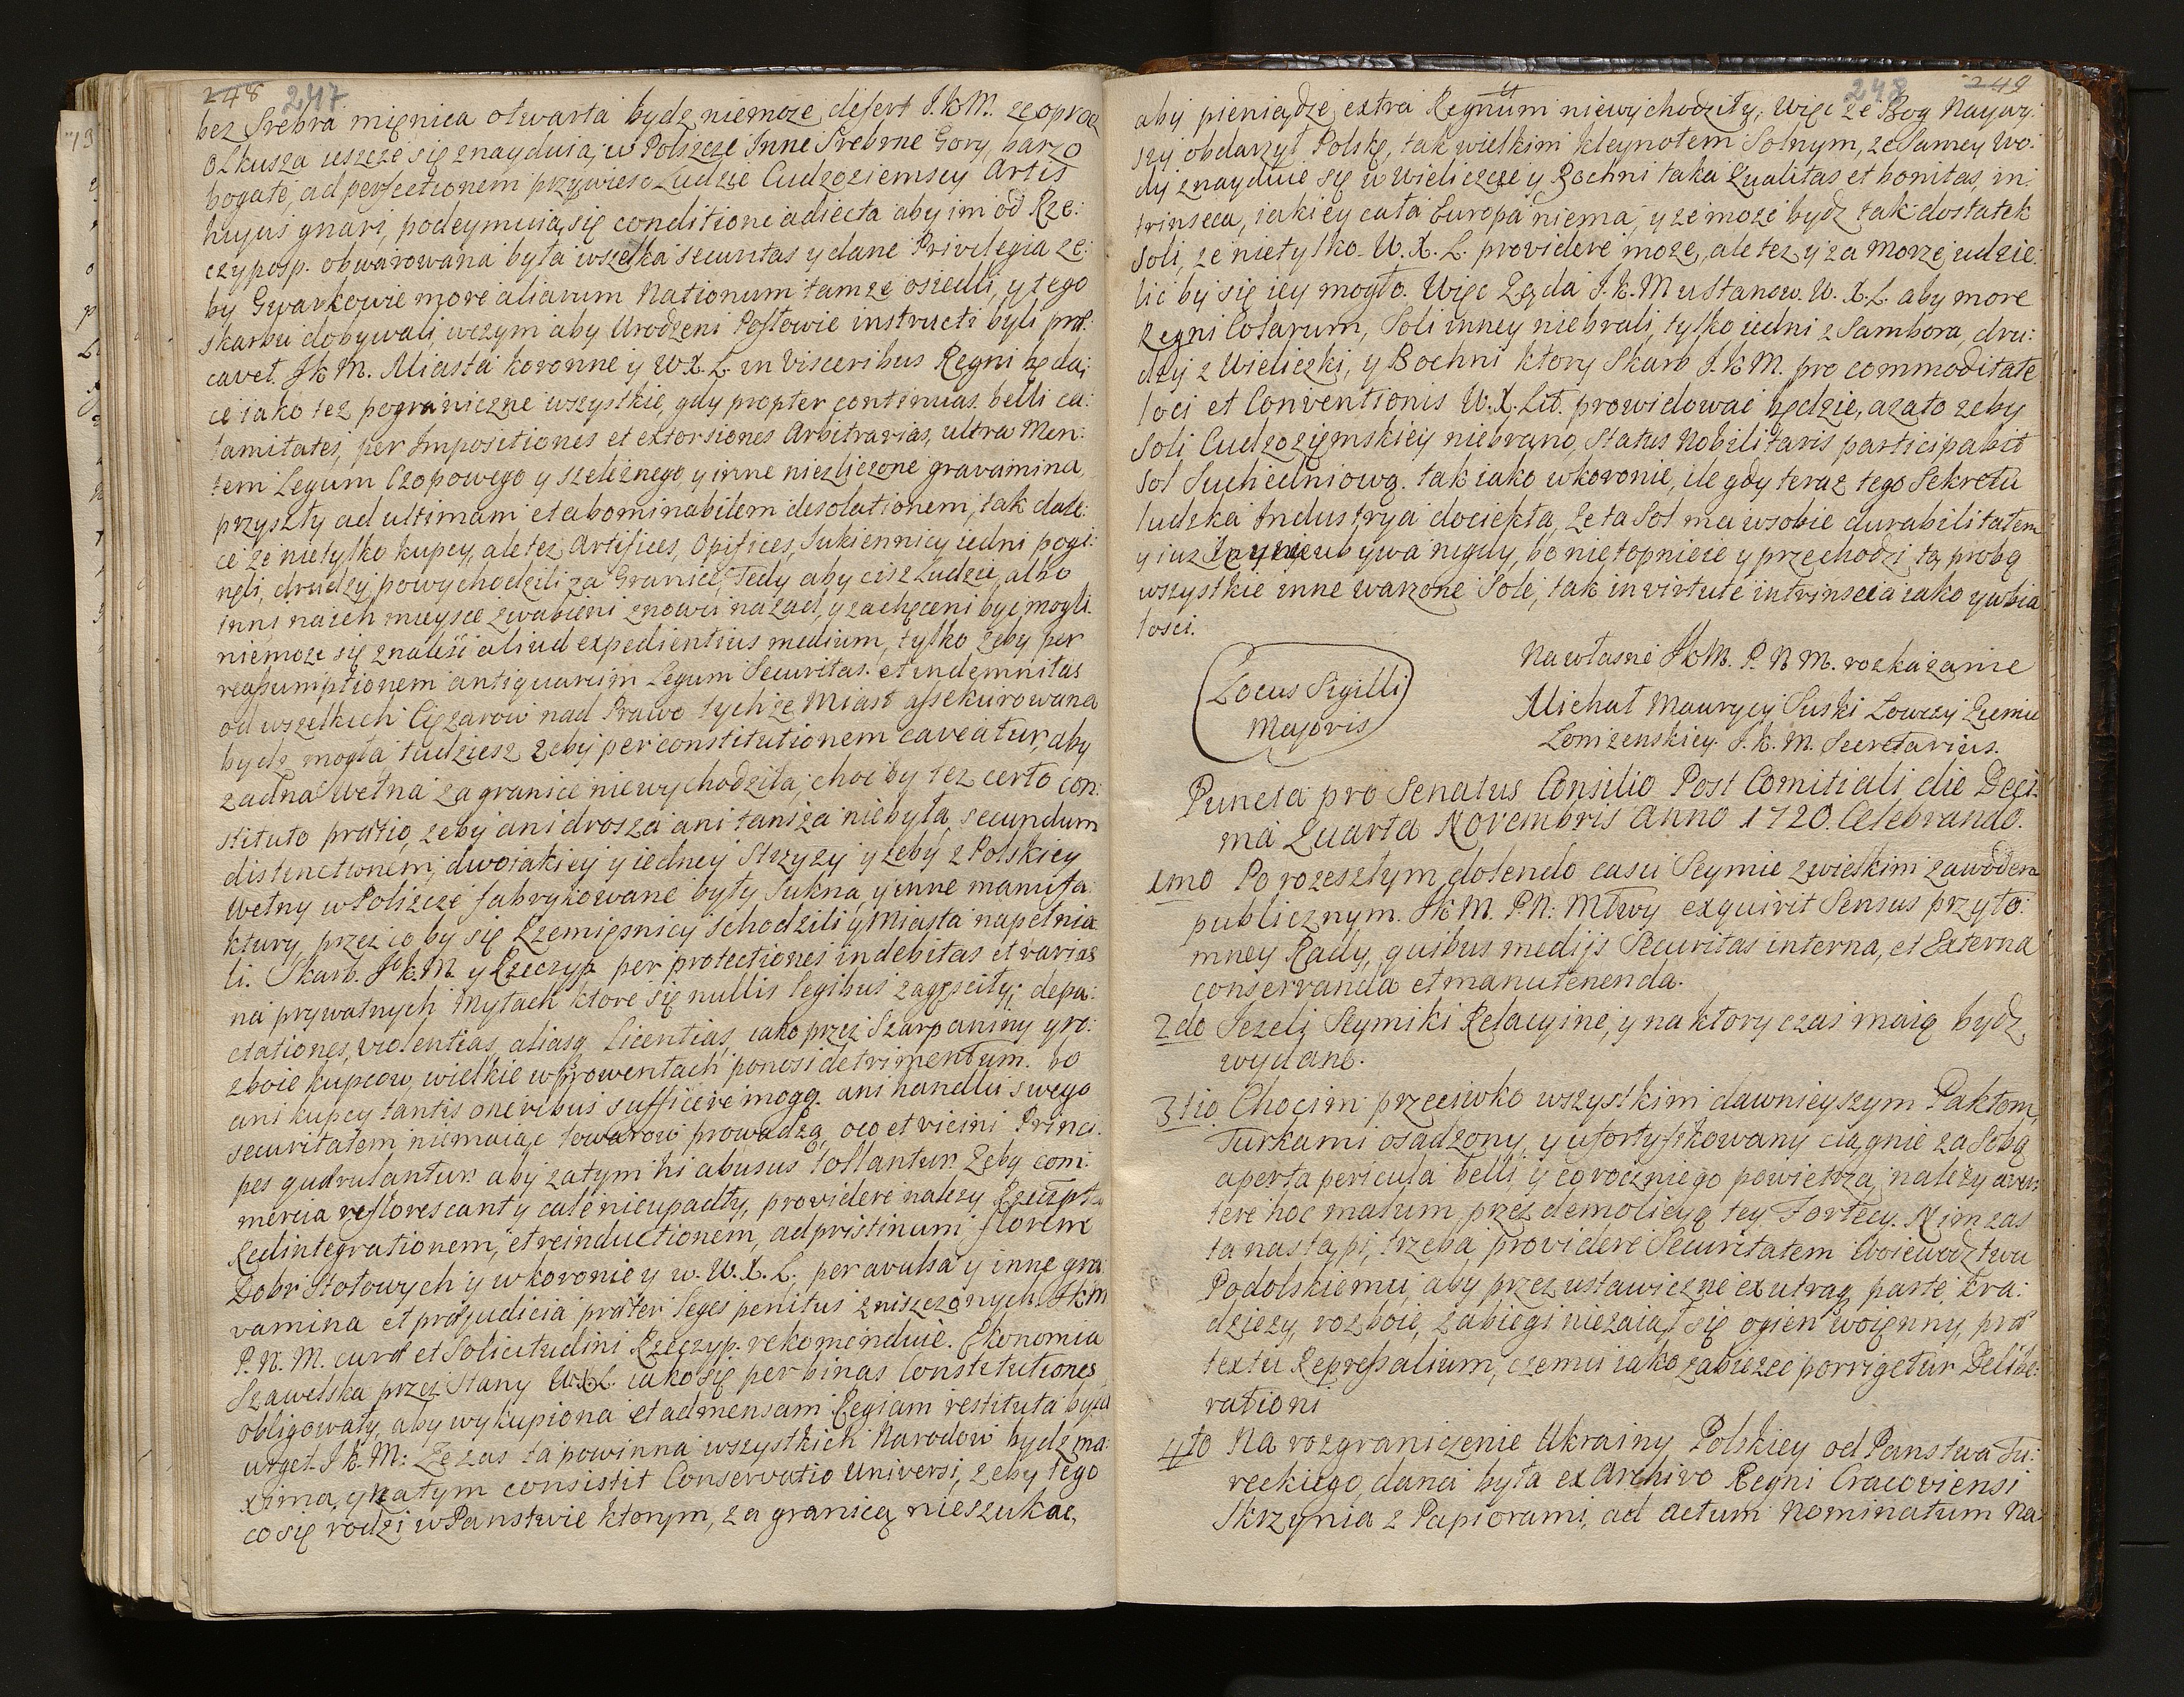 248 247
bez Srebra mięnica otwarta bydz niemoze, defert J. K M. ze oprocz
Olkusza ieszcze się znayduią w Polszcze Inne Srebrne Gory, barzo
bogate, ad perfectionem przywiesc Ludzie Cudzoziemscy Artis
hujus gnari, podeymuią się conditione adiecta aby im od Rze:
czyposp. obwarowana była wszelka securitas y dane Privilegia ze:
by Gwarkowie more aliarum Nationum tamze osiedli, y tego
skarbu dobywali, wczym aby Urodzeni Posłowie instructi byli præ:
cavet. J K M. Miasta koronne y W X. L. in Visceribus Regni będą:
ce iako tez pograniczne wszystkie, gdy propter continuas belli ca:
lamitates, per Impositiones et extorsiones Arbitrarias, ultra Men:
tem Legum Czopowego y szelężnego, y inne niezliczone gravamina,
przyszły ad ultimam et abominabilem desolationem, tak dale:
ce ze nietylko kupcy, ale tez Artifices, Opifices, Sukiennicy iedni pogi:
nęli, drudzy powychodzili za Granicę, Tedy aby cisz Ludzie, albo
inni naich mieysce zwabieni znowu nazad, y zachęceni byc mogli.
niemoze się znalesc aliud expedientius medium, tylko zeby per
reasumptionem antiquarum Legum Securitas et indemnitas
od wszelkich Cięzarow nad Prawo tychze Miast assekurowana
bydz mogła tudziesz zeby per constitutionem caveatur, aby
zadna Wełna za granicę niewychodziła, choc by tez certo con:
stituto prætio, zeby ani drosza ani tansza niebyła secundum
distinctionem, dwoiakiey y iedney Strzyzy y zeby z Polskiey
Wełny w Polszcze fabrykowane były Sukna, y inne manufa:
ktury, przez co by się Rzemięsnicy schodzili y Miasta napełnia:
li. Skarb. J K. M. y Rzeczyp. per protectiones indebitas et varias
na prywatnych Mytach ktore się nullis legibus zagęsciły; depa:
ctationes, violentias, aliasq; licentias, iako przez Szarpaniny y ro:
zboie kupcow, wielkie w Prowentach ponosi detrimentum. bo
ani kupcy tantis oneribus sufficere mogą. ani handlu swego
securitatem niemaiąc towarow prowadzą, oco et vicini Princi:
pes quærulantur: aby zatym hi abusus tollantur. Zeby com:
mercia reflorescant y cale nieupadły, providere nalezy Rzeczpta
Redintegrationem, et reinductionem, ad pristinum florem
Dobr Stołowych y w koronie y w. W. X. L. per avulsa y inne gra:
vamina et præjudicia præter leges penitus zniszczonych J K M
P. N. M. curæ et Solicitudini Rzeczyp. rekomenduie. Ekonomia
Szawelska przez Stany W X L. iako się per binas Constitutiones
obligowały, aby wykupiona et ad mensam Regiam restituta była
urget. J K. M: Ze zas ta powinna wszystkich Narodow bydz ma:
xima, y na tym consistit Conservatio Universi, zeby tego
co się rodzi w Panstwie ktorym, za granicą nieszukac,
248 249
aby pieniądze extra Regnum niewychodziły; Więc ze Bog Naywy:
szy obdarzył Polskę, tak wielkim kleynotem Solnym, ze Samey Wo:
dy znayduie się w Wieliczcze y Bochni taka Qualitas et bonitas in:
trinseca, iakiey cała Europa niema, y ze moze bydz tak dostatek
soli, ze nietylko. W. X. L. providere moze, ale tez y za Morze udzie:
lic by się iey mogło. Więc Ząda J. K. M u Stanow. W. X. L. aby more
Regni Colarum, Soli inney niebrali, tylko iedni z Sambora, dru:
dzy z Wieliczki, y Bochni ktory Skarb J. K M. pro commoditate
loci et Conventionis W. X. Lit. prowidowac będzie, azato zeby
Soli Cudzozięmskiey niebrano, Status Nobilitaris participabit
Sol Suchedniową. tak iako w koronie, ile gdy teraz tego Sekretu
ludzka Industrya dociekła, ze ta Sol ma wsobie durabilitatem
y iusz ieynieubywa nigdy, bo nietopnieie y przechodzi tą probą
wszystkie inne warzone Sole, tak in virtute intrinseca iako y w bia:
łosci.
Locus Sigilli
Majoris
Na własne J K M. P. N M. rozkazanie
Michał Maurycy Suski Łowczy Ziemie
Łomzenskiey. J. K. M. Secretarius.
Puncta pro Senatus Consilio Post Comitiali die Deci:
ma Quarta Novembris Anno 1720. Celebrando.
1mo Po rozeszłym, dolendo casu Seymie z wielkim zawodem
publicznym. J K M. P. N: Młwy exquirit Sensus przyto:
mney Rady, quibus medijs Securitas interna, et Externa
conservanda et manutenenda.
2do Jezeli Seymiki Relacyine, y na ktory czas maią bydz
wydane.
3tio Chocim przeciwko wszystkim dawnieyszym Paktom,
Turkami osadzony, y ufortyfikowany ciągnie za Sobą
aperta pericula belli, y coroczniego powietrza, nalezy aver:
tere hoc malum przez demolicyą tey Fortecy. Nim zas
ta nastąpi, trzeba providere Securitatem Woiewodztwu
Podolskiemu, aby przez ustawiczne ex utraq; parte, kra:
dziezy, rozboie, zabiegi niezaiął się ogien woięnny, præ
textu Repressalium, czemu iako zabiezec porrigetur Delibe:
rationi
4to Na rozgraniczenie Ukrainy Polskiey od Panstwa Tu:
reckiego, dana była ex Archivo Regni Cracoviensi
Skrzynia z Papiorami, ad actum Nominatum Na